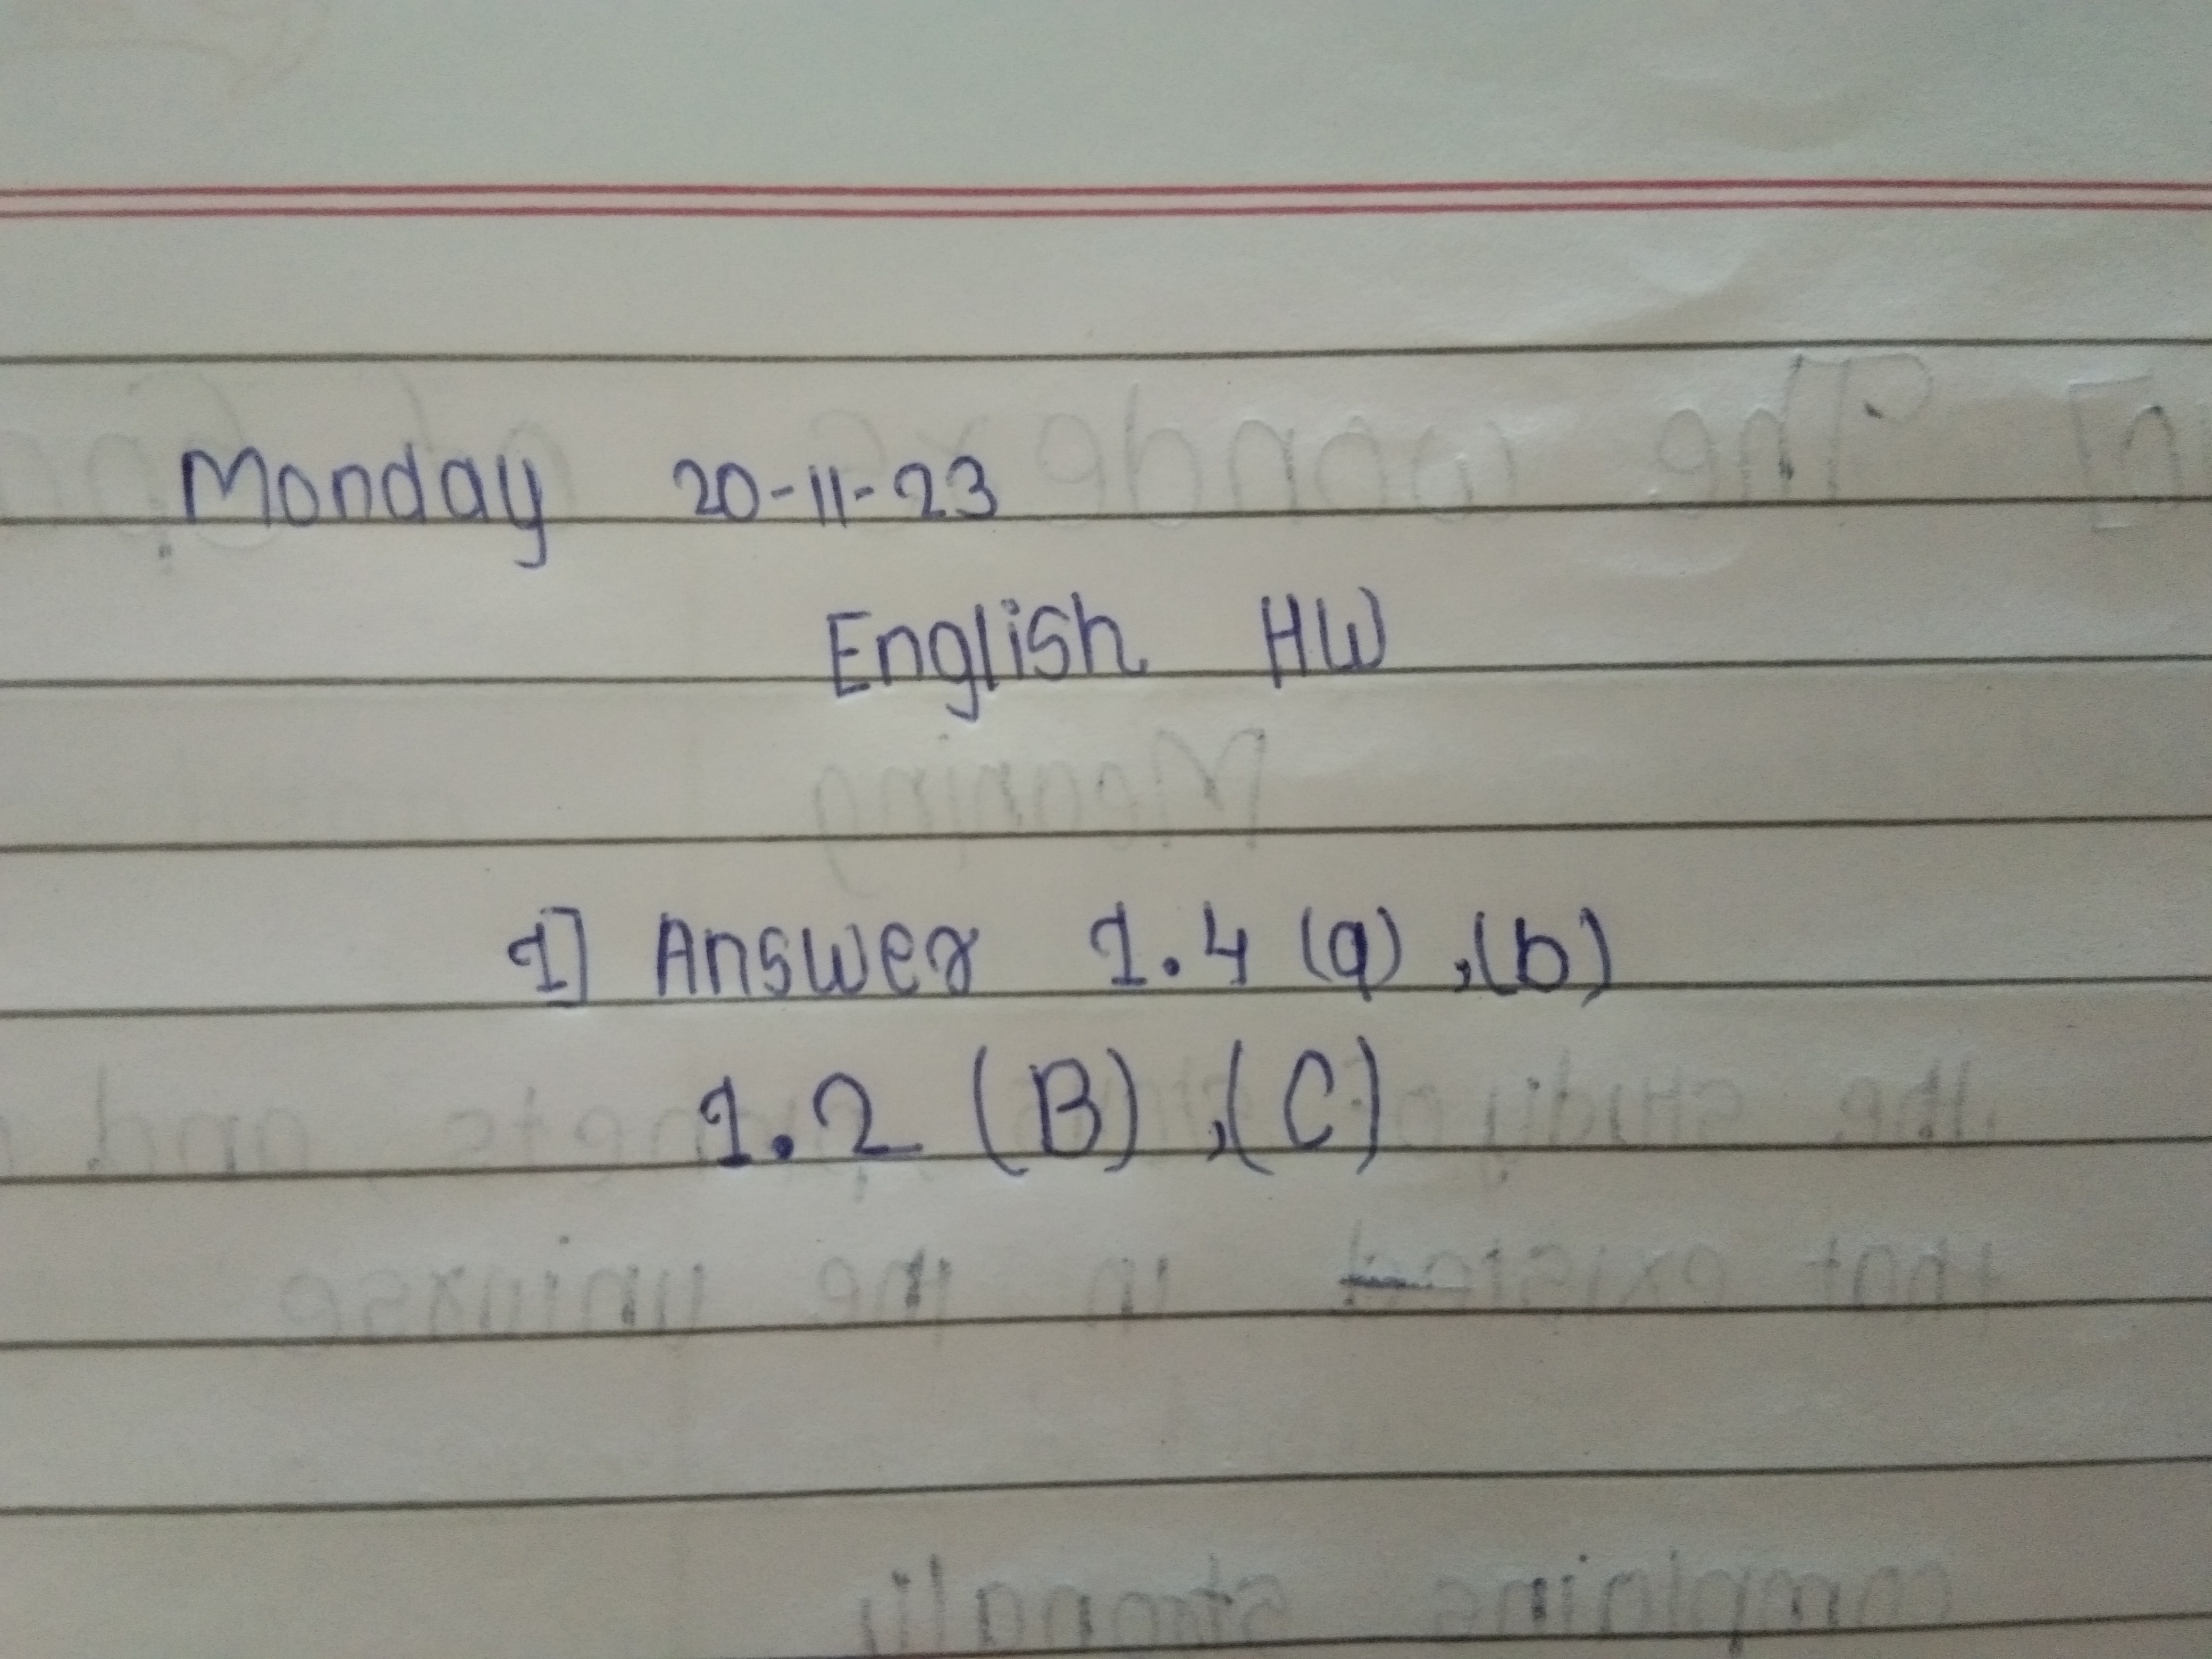 Monday 20-11-23
English HW
1] Answer 1.4 (a), (b)
1.2 (B), (C)